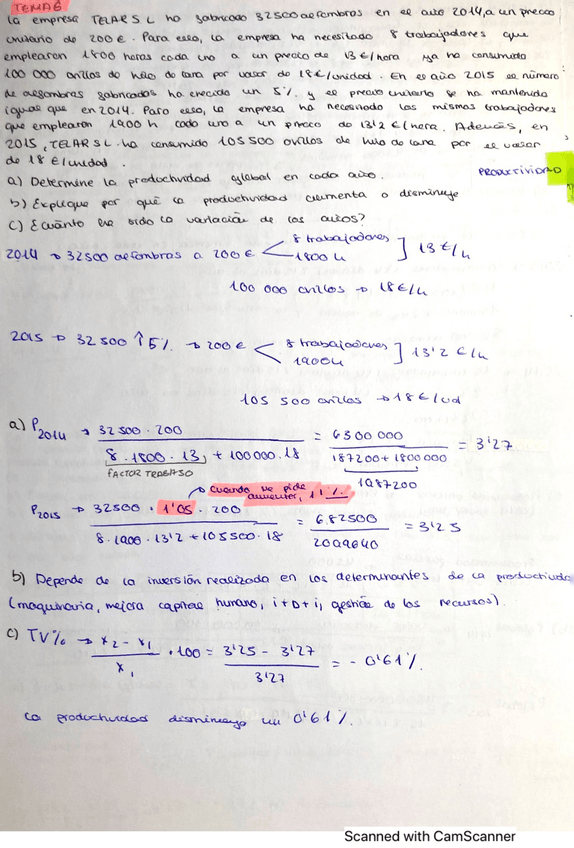 TEMA 6
La empresa TELAR S L ha fabricado 32500 alfombras en el año 2014, a un precio
unitario de 200 €. Para eso, la empresa ha necesitado 8 trabajadores que
emplearon 1800 horas cada uno a un precio de 13 €/hora ya ha consumido
100 000 ovillos de hilo de lana por valor de 18 €/unidad. En el año 2015 el número
de alfombras fabricados ha crecido un 5% y el precio unitario se ha mantenido
igual que en 2014. Para eso, la empresa ha necesitado los mismos trabajadores
que emplearon 1900 h cada uno a un precio de 13'2 €/hora. Además, en
2015, TELAR SL ha consumido 105 500 ovillos de hilo de lana por el valor
de 18 €/unidad.
PRODUCTIVIDAD
a) Determine la productividad global en cada año.
b) Explique por qué la productividad aumenta o disminuye
c) ¿Cuánto ha sido la variación de los años?
2014 → 32500 alfombras a 200 € < 8 trabajadores
1800 h ] 13 €/h
100 000 ovillos → 18 €/u
2015 → 32 500 ↑ 5% → 200 € < 8 trabajadores
1900h ] 13'2 €/h
105 500 ovillos → 18 €/ud
a) P2014 → 32500 · 200 / 8 · 1800 · 13 + 100000 · 18 = 6300 000 / 187200 + 1800000 = 3'27
FACTOR TRABAJO
1987200
Cuando me pide aumentar, 1'1%
P2015 → 32500 · 1'05 · 200 / 8 · 1900 · 13'2 + 105500 · 18 = 6.82500 / 2099640 = 3'25
b) Depende de la inversión realizada en los determinantes de la productivida
(maquinaria, mejora capital humano, i+D+i, gestión de los recursos).
c) TV% → x2 - x1 / x1 · 100 = 3'25 - 3'27 / 3'27 = - 0'61%.
La productividad disminuye un 0'61%.
Scanned with CamScanner